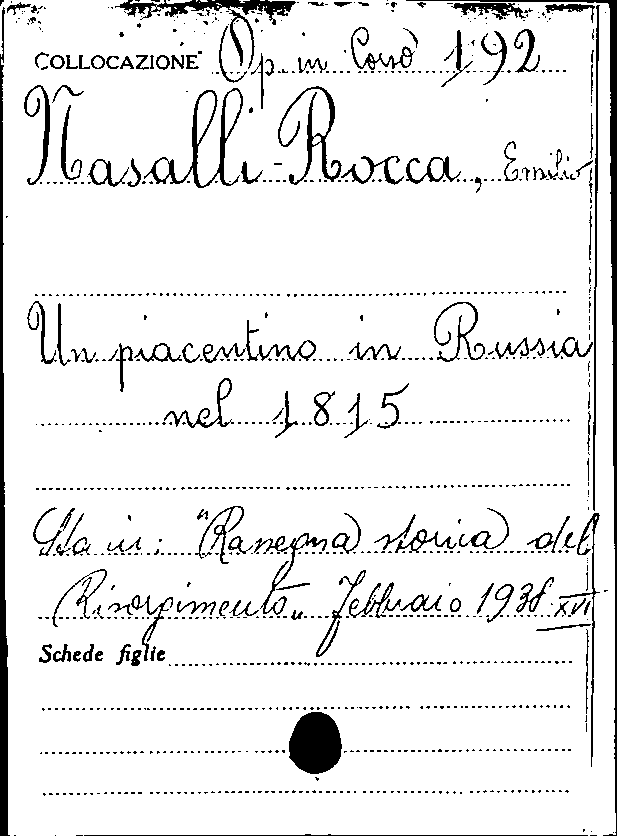 COLLOCAZIONE Op. in Corso 192
Nasalli-Rocca, Emilio
Un piacentino in Russia
nel 1815
Sta in: "Rassegna storica del
Risorgimento„ Febbraio 1938 XVI
Schede figlie